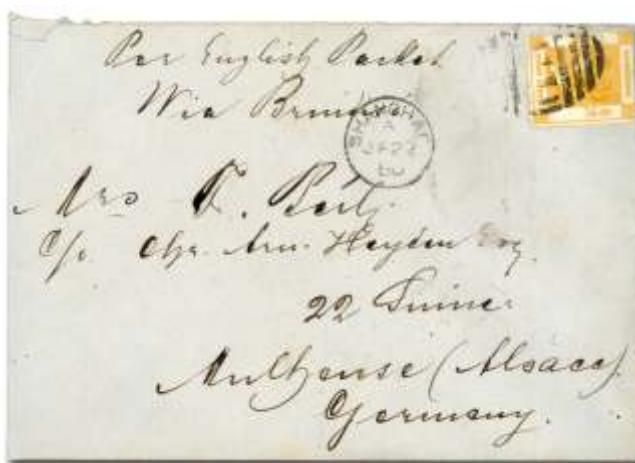 Per English Packet
Via Brindisi
SHANGHAI
A
JA 22
80
Mrs
C/o Heyden Esq
22
Mulhouse (Alsace)
Germany.